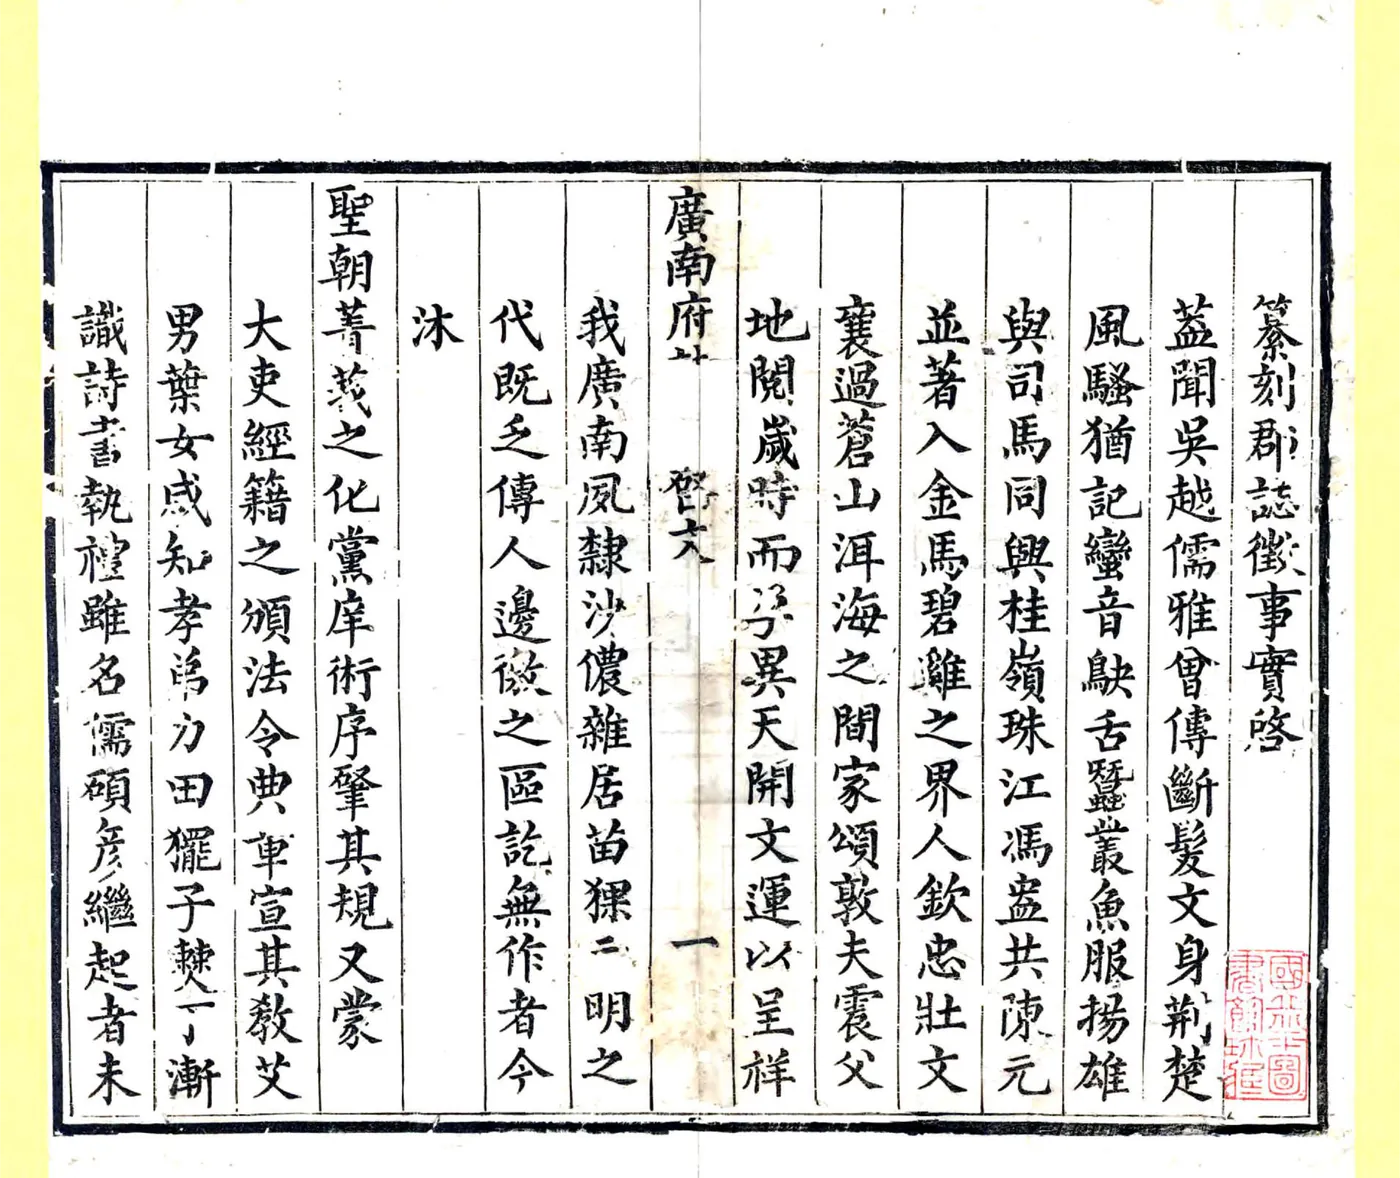 纂刻郡誌徵事實啓
蓋聞吳越儒雅曾傳斷髮文身荆楚
風騷猶記蠻音鴃舌蠶叢魚服揚雄
與司馬同興桂嶺珠江馮盎共陳元
並著入金馬碧雞之界人欽忠壯文
襄過蒼山洱海之間家頌敦夫震父
地閱歲時而異天開文運以呈祥
廣南府
啓文
一
我廣南夙隸沙儂雜居苗猓二明之
代既乏傳人邊徼之區訖無作者今
沐
聖朝菁莪之化黨庠術序肇其規又蒙
大吏經籍之頒法令典章宣其敎艾
男葉女咸知孝弟力田玀子僰丁漸
識詩書執禮雖名儒碩彦繼起者未